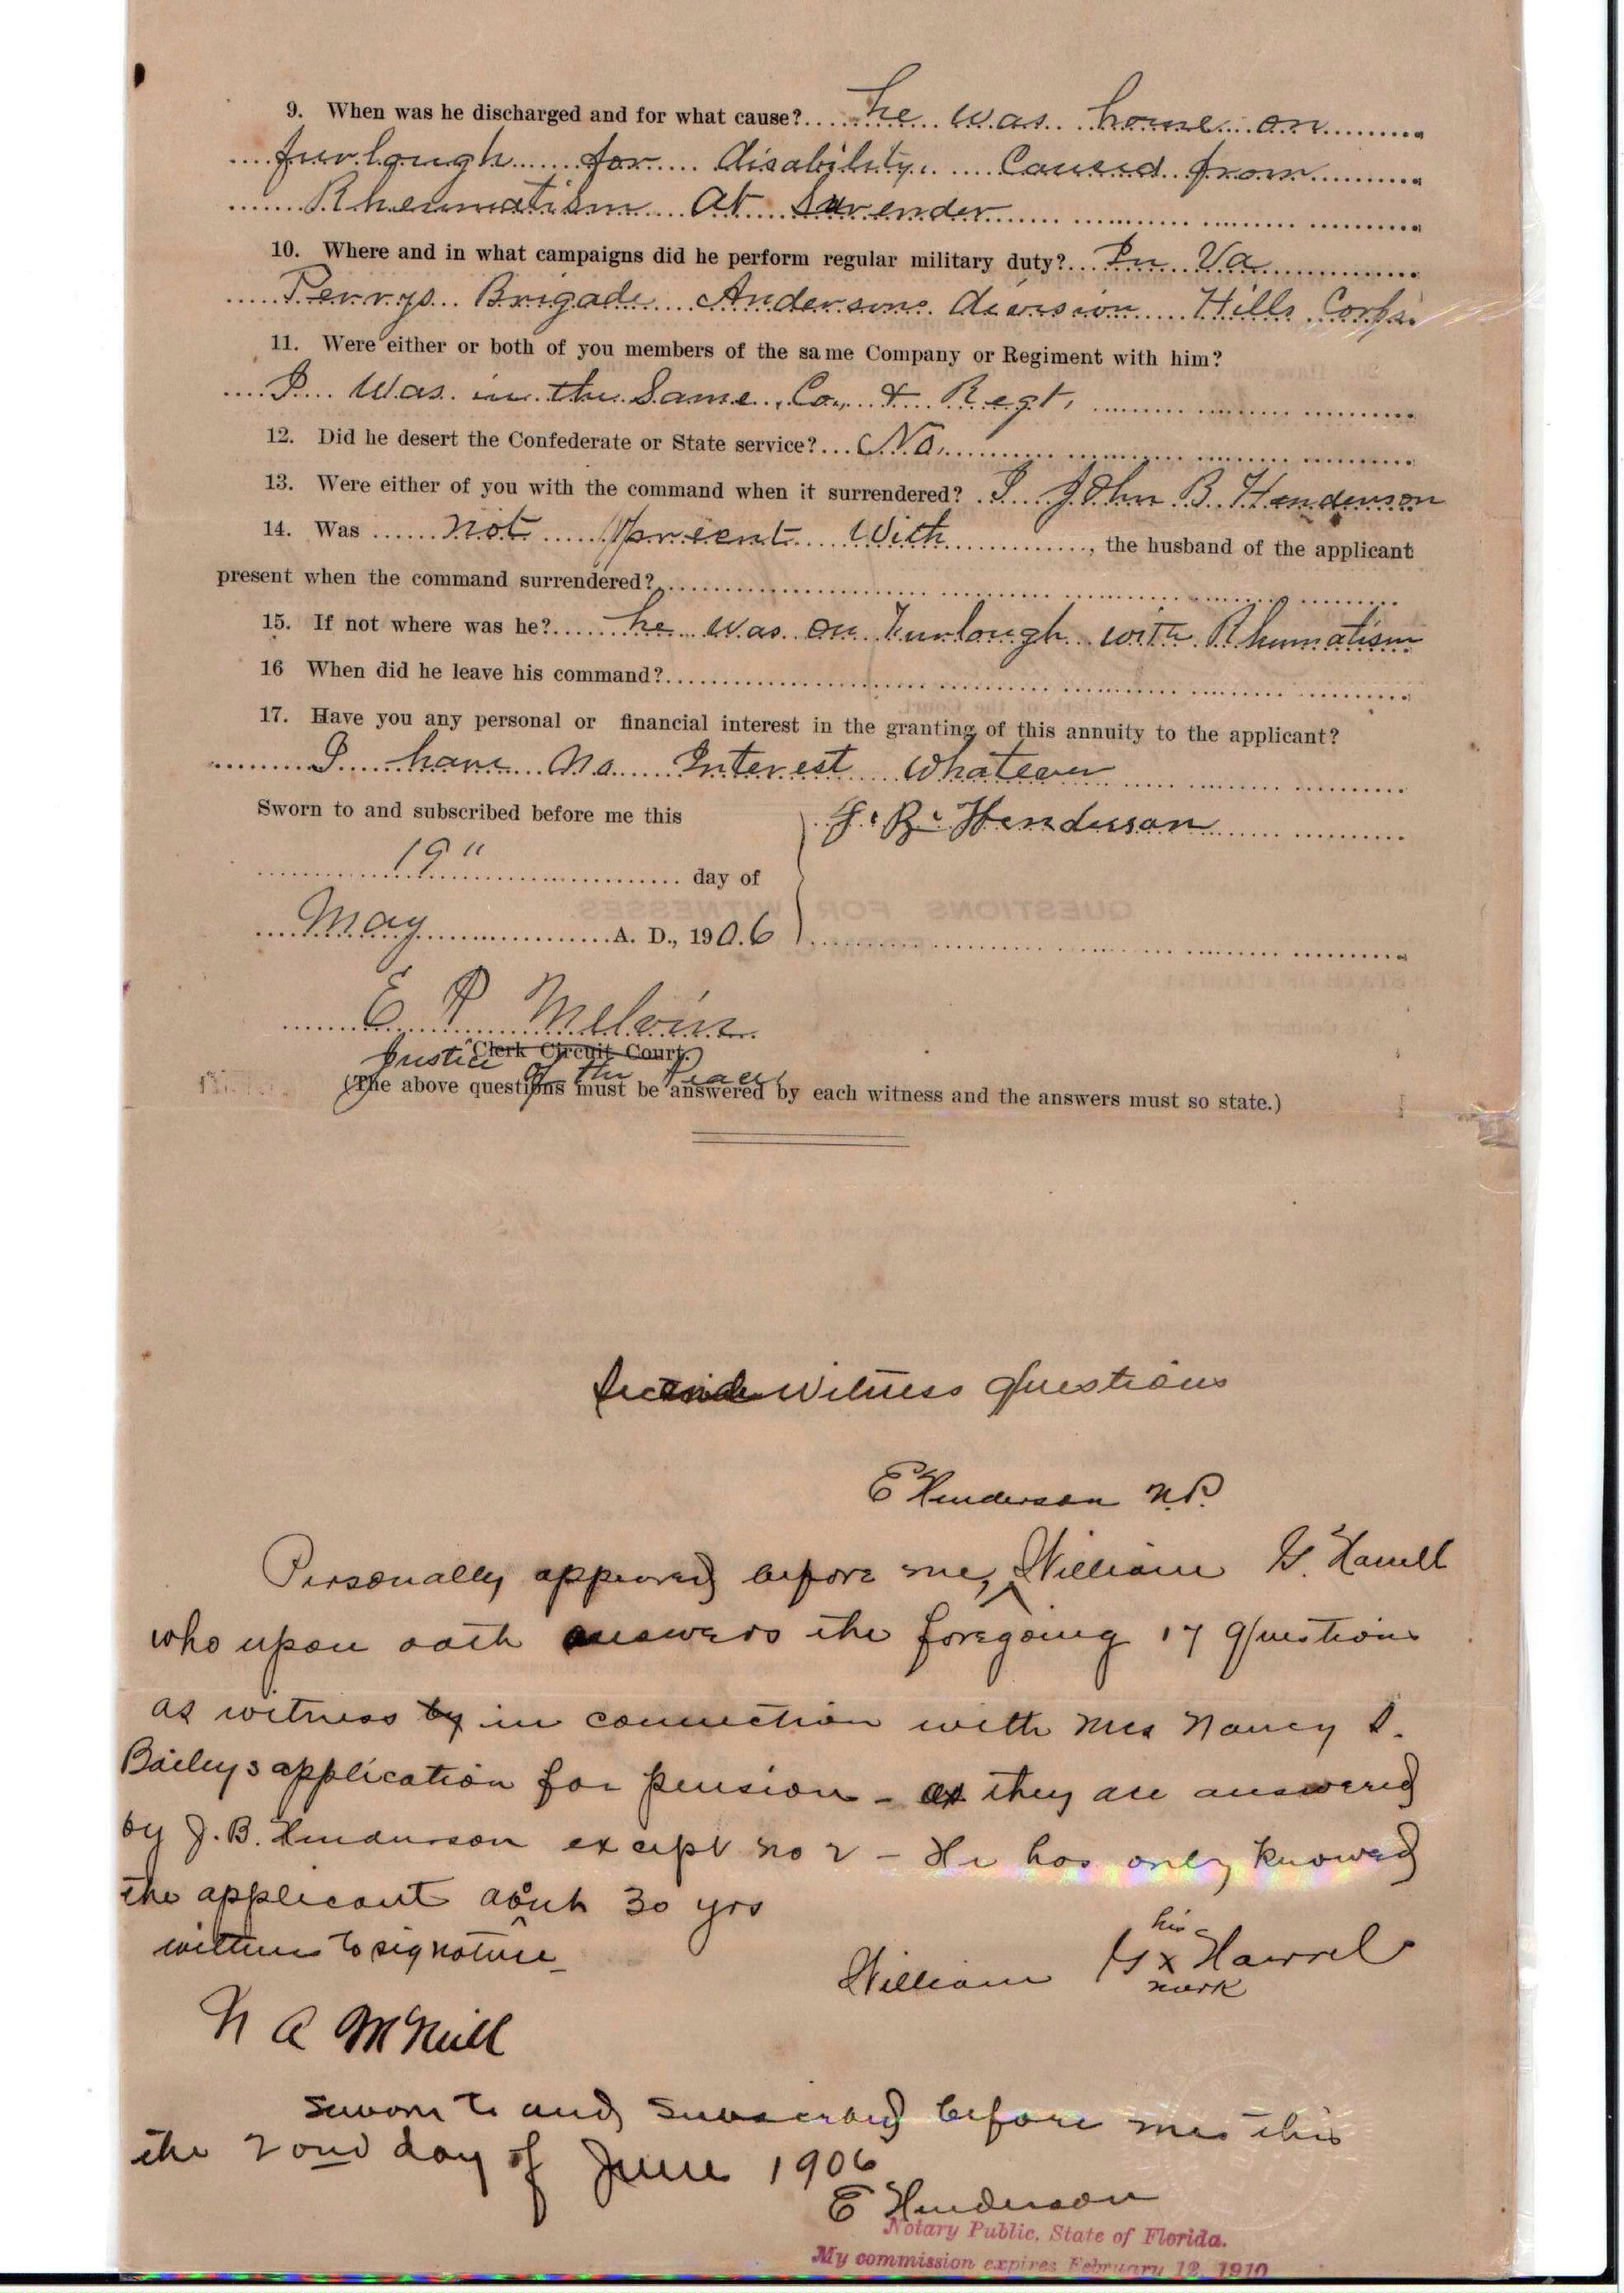 9. When was he discharged and for what cause? he was home on
furlough for disability. Caused from
Rheumatism at Surender
10. Where and in what campaigns did he perform regular military duty? In Va
Perrys Brigade Andersons division Hills Corps.
11. Were either or both of you members of the same Company or Regiment with him?
I was in the Same Co. & Regt.
12. Did he desert the Confederate or State service? No.
13. Were either of you with the command when it surrendered? I John B. Henderson
14. Was not present with, the husband of the applicant
present when the command surrendered?
15. If not where was he? he was on Furlough with Rhumatism
16 When did he leave his command?
17. Have you any personal or financial interest in the granting of this annuity to the applicant?
I have no Interest whatever
Sworn to and subscribed before me this
J. B. Henderson
19" day of
May A. D., 1906
E P Melvin
Clerk Circuit Court.
Justice of the Peace
(The above questions must be answered by each witness and the answers must so state.)
Second Witness Questions
E Henderson N.P.
Personally appeared before me, William G. Harrell
who upon oath answers the foregoing 17 questions
as witness by in connection with Mrs Nancy S.
Baileys application for pension - as they are answered
by J. B. Henderson except no 2 - He has only knowed
the applicant about 30 yrs
witness to signature
his
William G x Harrel
mark
N A McNeill
Sworn to and subscribed before me this
the 22nd day of June 1906
E Henderson
Notary Public, State of Florida.
My commission expires February 12, 1910